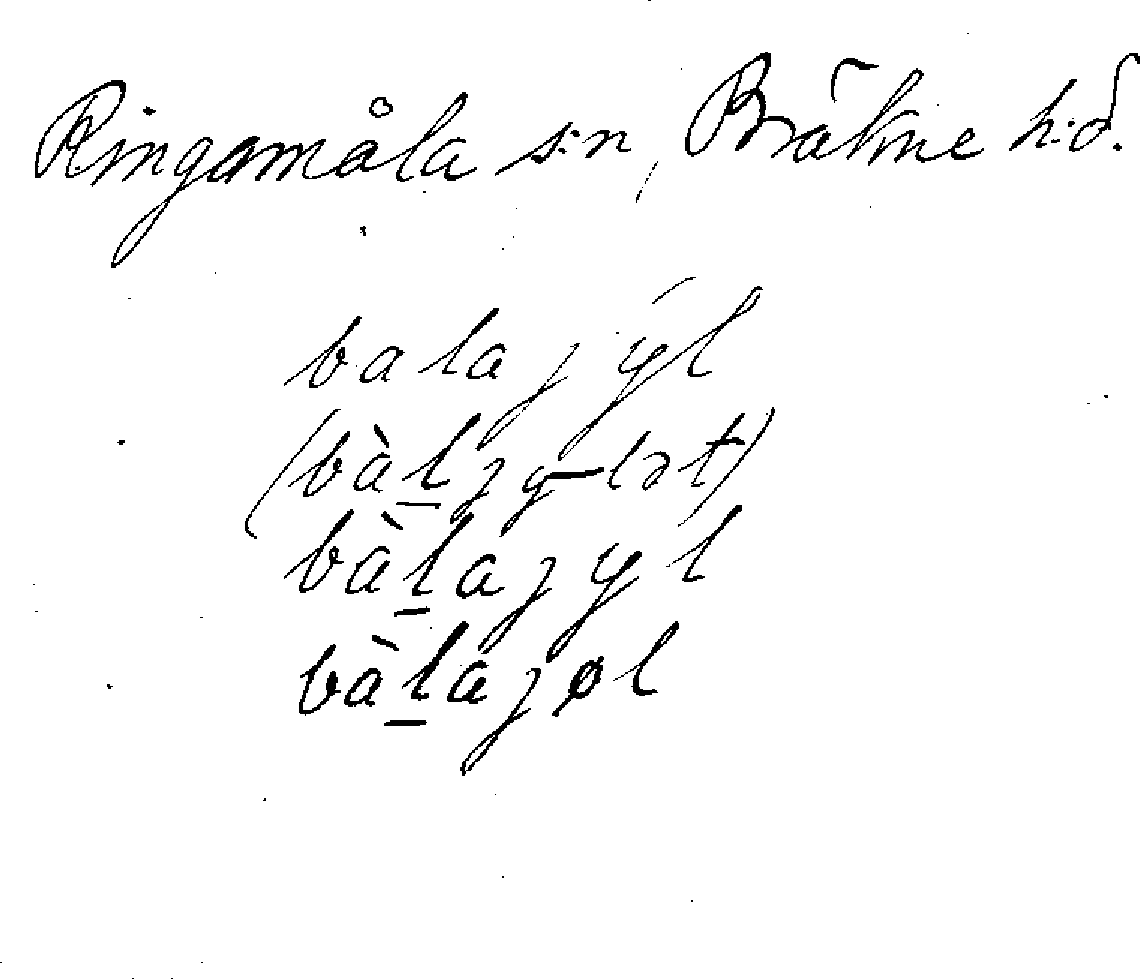 Ringamåla s:n, Bräkne h:d.
balajýl
(bàl̲jy–lət)
bàl̲ajyl
bàl̲ajøl